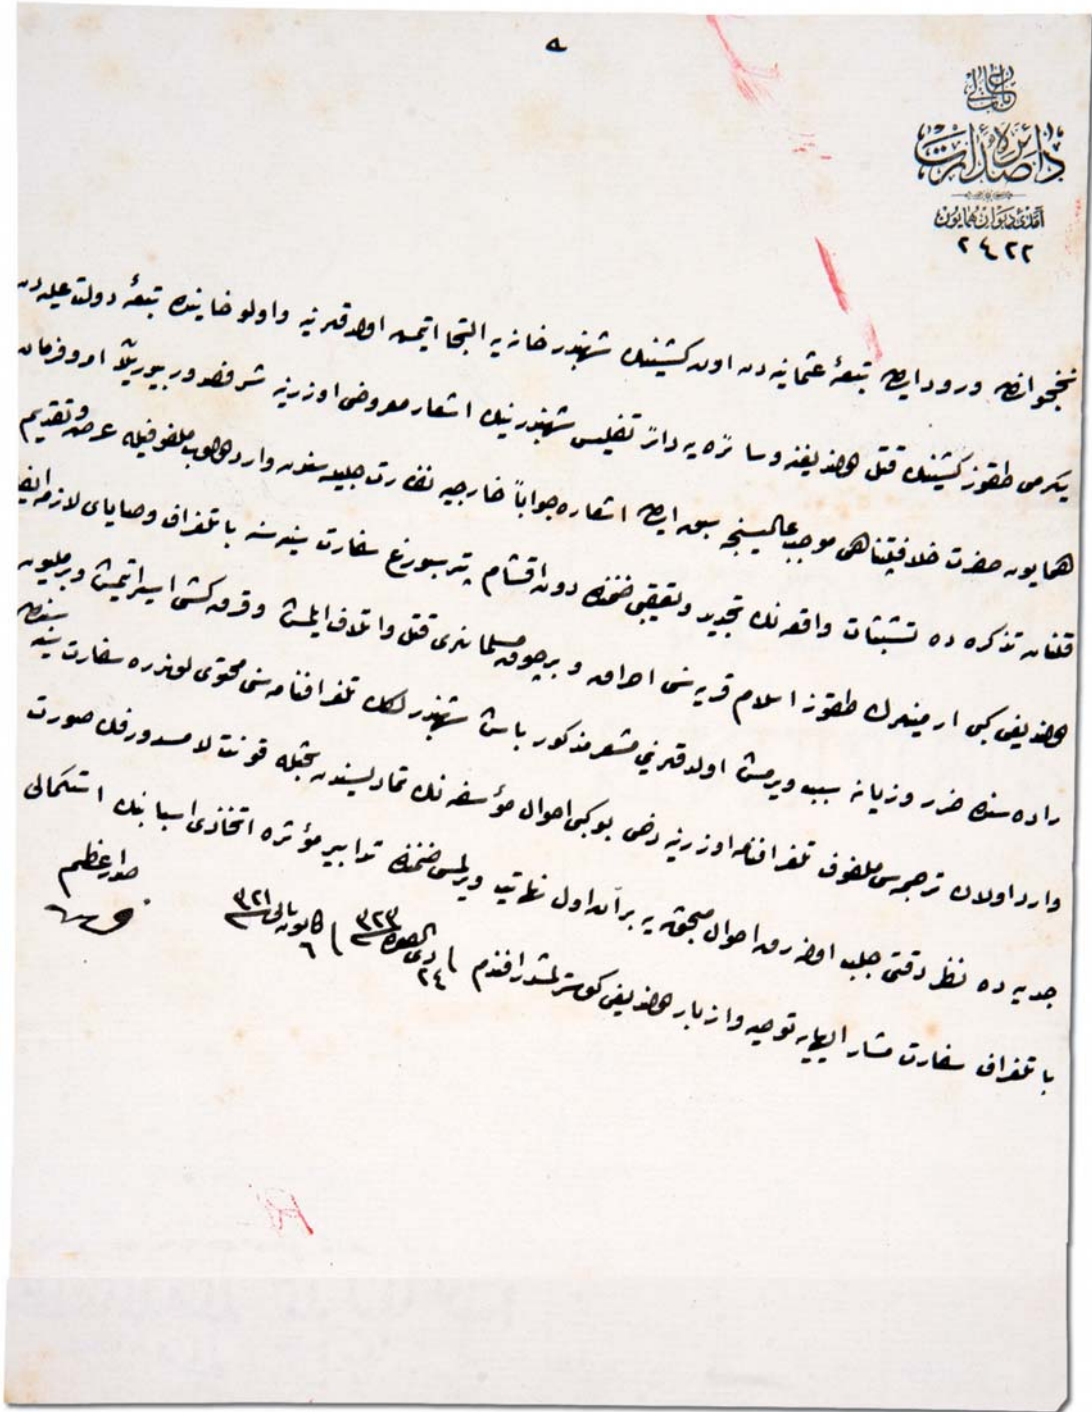 ﻪ
باب عالی
دائرهٔ صدارت
آمدئ دیوان همایون
٢٤٢٢
نخجوانه ورود ایدن تبعهٔ عثمانیه‌دن اون کشینك شهبندرخانه‌یه التجا ایتمش اولدقلرینه و اولو خاننده تبعهٔ دولت علیه‌دن
یكرمی طقوز كشینك قتل اولندیغنه و سائره‌یه دائر تفلیس شهبندرینك اشعار معروضی اوزرینه شرفصدور بیوریلان امر و فرمان
همایون حضرت خلافتپناهی موجب عالیسنجه سبق ایدن اشعاره جواباً خارجیه نظارت جلیله‌سندن وارد اولوب ملفوفیله عرض و تقدیم
قلنان تذكره‌ده تشبثات واقعه‌نك تجدید و تعقیبی ضمننده دون اقشام پترسبورغ سفارت سنیه‌سنه با تلغراف وصایای لازمه ایفا
اولندیغی كبی ارمنیلرك طقوز اسلام قریه‌سنی احراق و برچوق مسلمانلری قتل و اتلاف ایلمش و قرق كشی اسیر ایتمش و بر ملیون
راده‌سنده ضرر و زیانه سبب ویرمش اولدقلرینی مشعر مذكور باش شهبندرلكك تلغرافنامه‌سنی محتوی لوندره سفارت سنیه‌سندن
وارد اولان ترجمه‌سی ملفوف تلغرافنامه اوزرینه دخی بو كبی احوال مؤسفه‌نك تمادیسندن بحثله قونت لامسدورفك صورت
جدیه‌ده نظر دقتی جلب اولنه‌رق احوال مبحوثه‌یه بر آن اول نهایت ویرلمسی ضمننده تدابیر مؤثره اتخاذی اسبابنك استكمالی
با تلغراف سفارت مشار الیهایه توصیه و ازبار اولندیغی كوسترلمشدر افندم
فی ٢٤ ذی القعده ٣٢٣ فی ٦ كانون ثانی ٣٢١
صدر اعظم